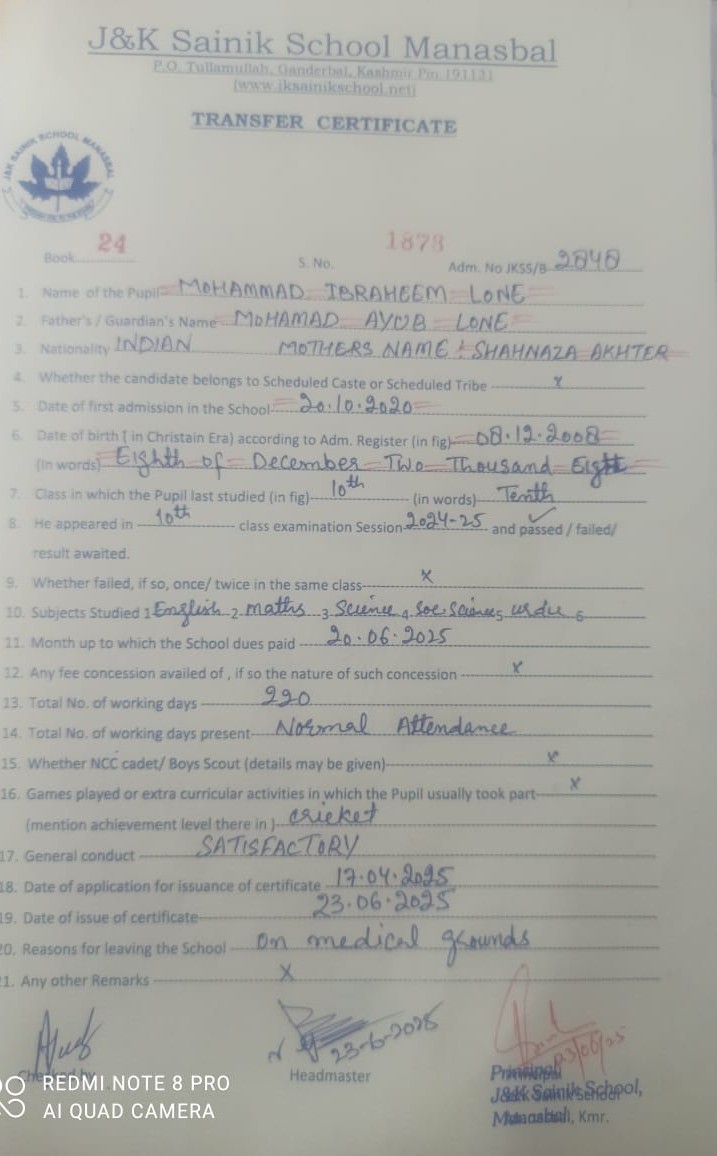 J&K Sainik School Manasbal
P.O. Tullamullah, Ganderbal, Kashmir Pin 191131
(www.jksainikschool.net)
TRANSFER CERTIFICATE
J&K SAINIK SCHOOL MANASBAL
Book 24 S. No. 1873 Adm. No JKSS/B 2848
1. Name of the Pupil MOHAMMAD IBRAHEEM LONE
2. Father's / Guardian's Name MOHAMAD AYUB LONE
3. Nationality INDIAN MOTHERS NAME : SHAHNAZA AKHTER
4. Whether the candidate belongs to Scheduled Caste or Scheduled Tribe x
5. Date of first admission in the School 20.10.2020
6. Date of birth ( in Christain Era) according to Adm. Register (in fig) 08.12.2008
(In words) Eighth of December Two Thousand Eight
7. Class in which the Pupil last studied (in fig) 10th (in words) Tenth
8. He appeared in 10th class examination Session 2024-25 and passed / failed/
result awaited.
9. Whether failed, if so, once/ twice in the same class x
10. Subjects Studied 1 English 2 maths 3 Science 4 Soc. Science 5 urdu 6
11. Month up to which the School dues paid 20.06.2025
12. Any fee concession availed of , if so the nature of such concession x
13. Total No. of working days 220
14. Total No. of working days present Normal Attendance
15. Whether NCC cadet/ Boys Scout (details may be given) x
16. Games played or extra curricular activities in which the Pupil usually took part x
(mention achievement level there in ) cricket
17. General conduct SATISFACTORY
18. Date of application for issuance of certificate 17.04.2025
19. Date of issue of certificate 23.06.2025
20. Reasons for leaving the School on medical grounds
21. Any other Remarks x
23-6-2025
23/06/25
Checked by Headmaster Principal
J&K Sainik School,
Manasbal, Kmr.
REDMI NOTE 8 PRO
AI QUAD CAMERA